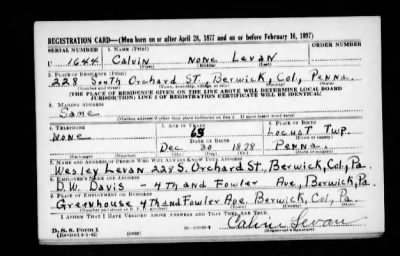 REGISTRATION CARD—(Men born on or after April 28, 1877 and on or before February 16, 1897)
SERIAL NUMBER 1. NAME (Print) ORDER NUMBER
U 1644 Calvin none Levan
(First) (Middle) (Last)
2. PLACE OF RESIDENCE (Print)
228 South Orchard St., Berwick, Col., Penna.
(Number and street) (Town, township, village, or city) (County) (State)
[THE PLACE OF RESIDENCE GIVEN ON THE LINE ABOVE WILL DETERMINE LOCAL BOARD
JURISDICTION; LINE 2 OF REGISTRATION CERTIFICATE WILL BE IDENTICAL]
3. MAILING ADDRESS
Same
(Mailing address if other than place indicated on line 2. If same insert word same)
4. TELEPHONE 5. AGE IN YEARS 6. PLACE OF BIRTH
none Locust Twp.
DATE OF BIRTH
Dec 30 1878 Penna.
7. NAME AND ADDRESS OF PERSON WHO WILL ALWAYS KNOW YOUR ADDRESS
Wesley Levan 228 S. Orchard St., Berwick, Col., Pa
8. EMPLOYER'S NAME AND ADDRESS
D.W. Davis - 4th and Fowler Ave., Berwick, Pa.
9. PLACE OF EMPLOYMENT OR BUSINESS
Greenhouse 4th and Fowler Ave. Berwick, Col., Pa.
I AFFIRM THAT I HAVE VERIFIED ABOVE ANSWERS AND THAT THEY ARE TRUE.
D. S. S. Form 1
(Revised 4-1-42) (over)
Calvin Levan
(Registrant's signature)